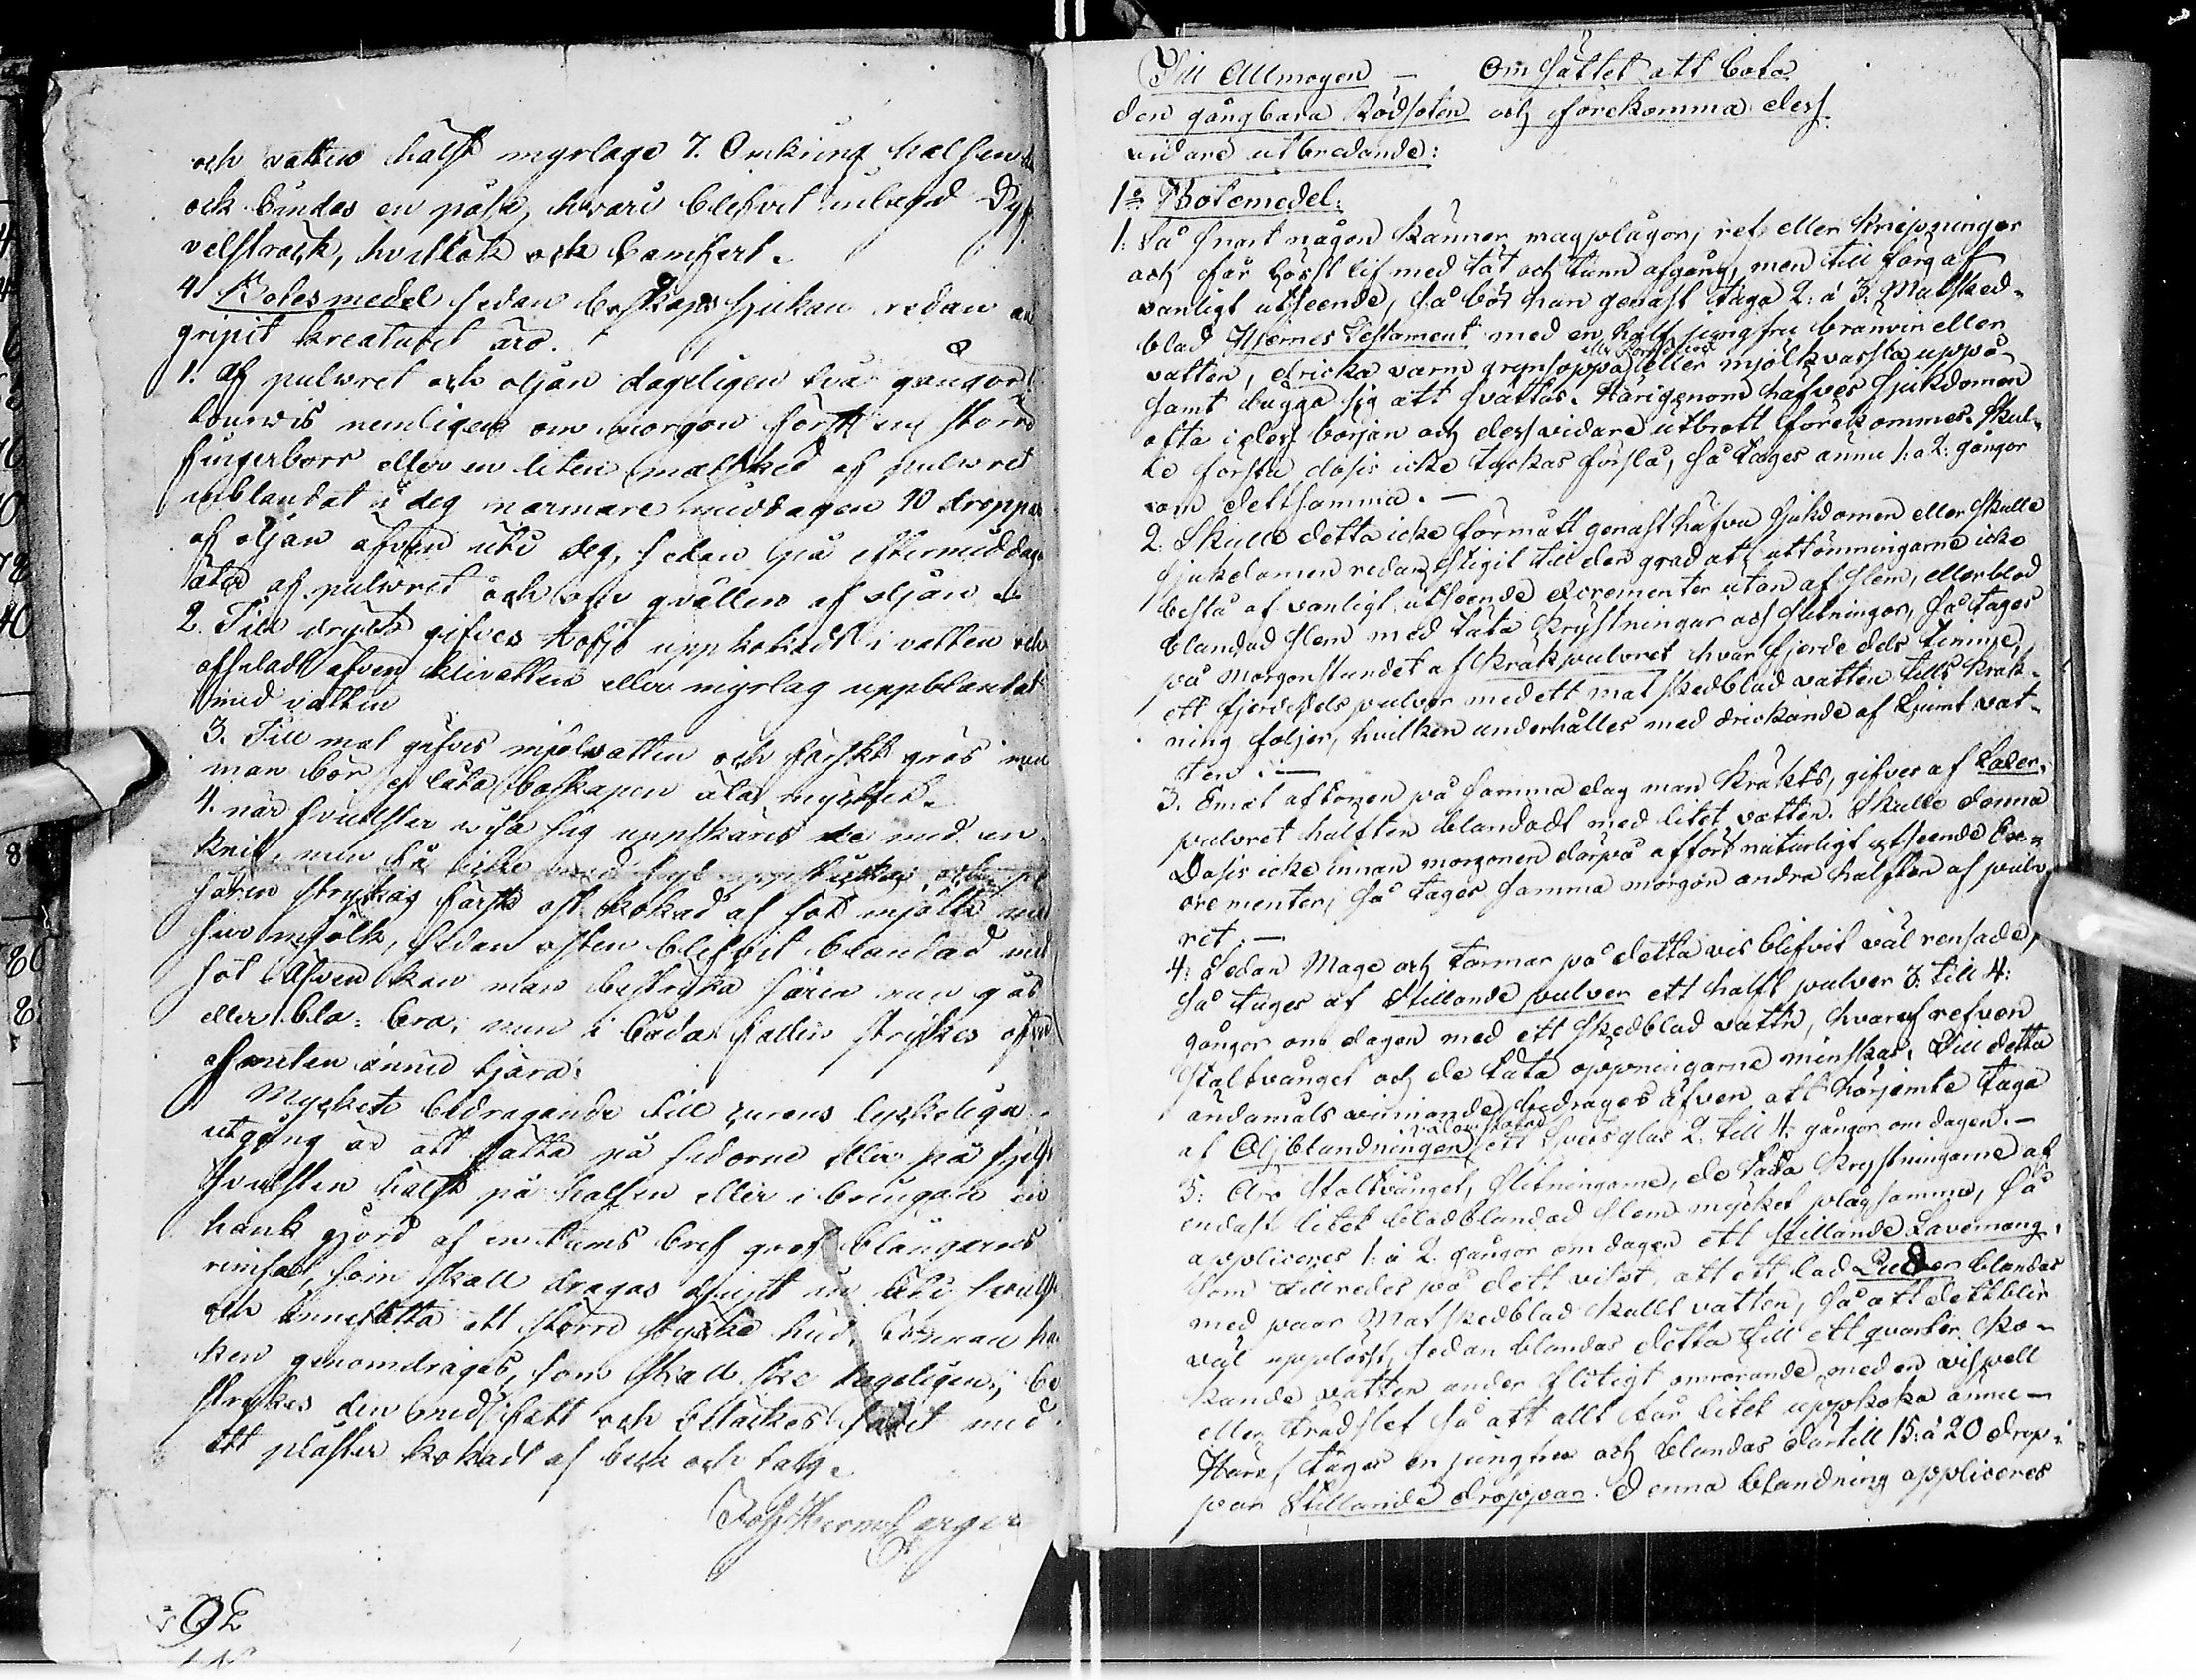 och vatten hälst myrlage 7. Omkring halsen
ock bindes en påse, hvari blifvit inlagd Dyf
velsträck, hvitlök och Camfert.
4. Botesmedel sedan boskaps sjukan redan an
gripit kreaturet äro.
1. af pulwret och oljan dageligen två gångor
tourwis nemligen om morgon först en större
fingerborr eller en liten matsked af pulwret
inblandat i deg närmare middagen 10 droppar
af oljan äfven uti deg, sedan på eftermiddagen
åter af pulwret och om qvällen af oljan
2. Till dryck gifves hafre uppkokadt i vatten och
afsiladt äfven klivatten eller myrlag uppblandat
med vatten
3. Till mat gifves mjölvatten och färskt gräs men
man bör ej låta boskapen äta mycket.
4. när svulster wisa sig uppskäres de med en
knif, men
såren strykas färsk ost kokad af söt mjölk med
sur mjölk, sedan osten blifvit blandad med
sot Äfven kan man bestryka såren
eller bra, men i båda fallen strykes
ofvanden ännu tjära:
Mycket bidragande till curens lyckeliga
utgång är att sätta på sidorne eller på sjelf
svulsten hälst på halsen eller i bringan en
hank gjord af en tums bred grof blångarns
rimsa, som skall dragas
och innefatta ett större stycke hud, innan han
ken genomdrages, som skall ske dageligen, be
strykes den med fett och betäckes såret med
ett plåster kokadt af beck och talg.
92
Till Allmogen — Om sättet att bota
den gångbara Rödsoten och förekomma dess
vidare utbredande:
1º Botemedel:
1: Så snart någon känner magplågor, ref eller knipningar
och får löst lif med tät och tunn afgång, men till färg af
vanligt utseende, så bör han genast taga 2: à 3: Matsked-
blad Hjernes Testament med en half jungfru bränvin eller
vatten, dricka varm grynsoppa eller mjölkvassla uppå
samt lägga sig att svättas. Härigenom häfves sjukdomen
ofta i dess början och dess vidare utbrott förekommes. Skul-
le första dosis icke tyckas förslå, så tages ännu 1: à 2: gångor
om dettsamma. —
2. Skulle detta icke förmått genast häfva sjukdomen eller skulle
sjukdomen redan stigit till den grad att uttömningarne icke
bestå af vanligt utseende excrementer utan af slem, eller blod
blandad slem med täta krystningar och slitningar, så tages
på Morgonstundet af Kräkpulvret hvar fjerdedels timme,
ett fjerdedels pulver med ett matskedblad vatten tills kräk-
ning följer, hvilken underhålles med drickande af ljumt vat-
ten. —
3. Emot aftonen på samma dag man kräkts, gifves af Laxer-
pulvret hälften blandadt med litet vatten. Skulle denna
Dosis icke innan morgonen derpå affört naturligt utseende Ex-
crementer, så tages samma morgon andra hälften af pulv-
ret. —
4: Sedan Mage och Tarmar på detta vis blifvit väl rensade,
så tages af Stillande pulver ett halft pulver 3: till 4:
gångor om dagen med ett skedblad vattn, hvaraf refven
Stoltvånget och de täta öppningarne minskas. Till detta
ändamåls vinnande bidrages äfven att härjemte taga
af Oljblandningen väl omskakad ett Svensglas 2: till 4: gångor om dagen. —
5: Äro Stoltvånget, slitningarne, de täta krystningarne af
endast litet blodblandad slem mycket plågsamma, så
appliceres 1: à 2. gångor om dagen ett stillande Lavemang,
som tillredes på dett viset, att ett lod Puder blandas
med paar Matskedblad kallt vatten, så att dett blir
väl upplöst, sedan blandas detta till ett qvarter ko-
kande vatten under flitigt omrörande med en vispell
eller trädslef så att allt får litet uppkoka ännu —
Häraf tages en jungfru och blandas dertill 15: à 20 drop-
par Stillande droppar. Denna blandning appliceres